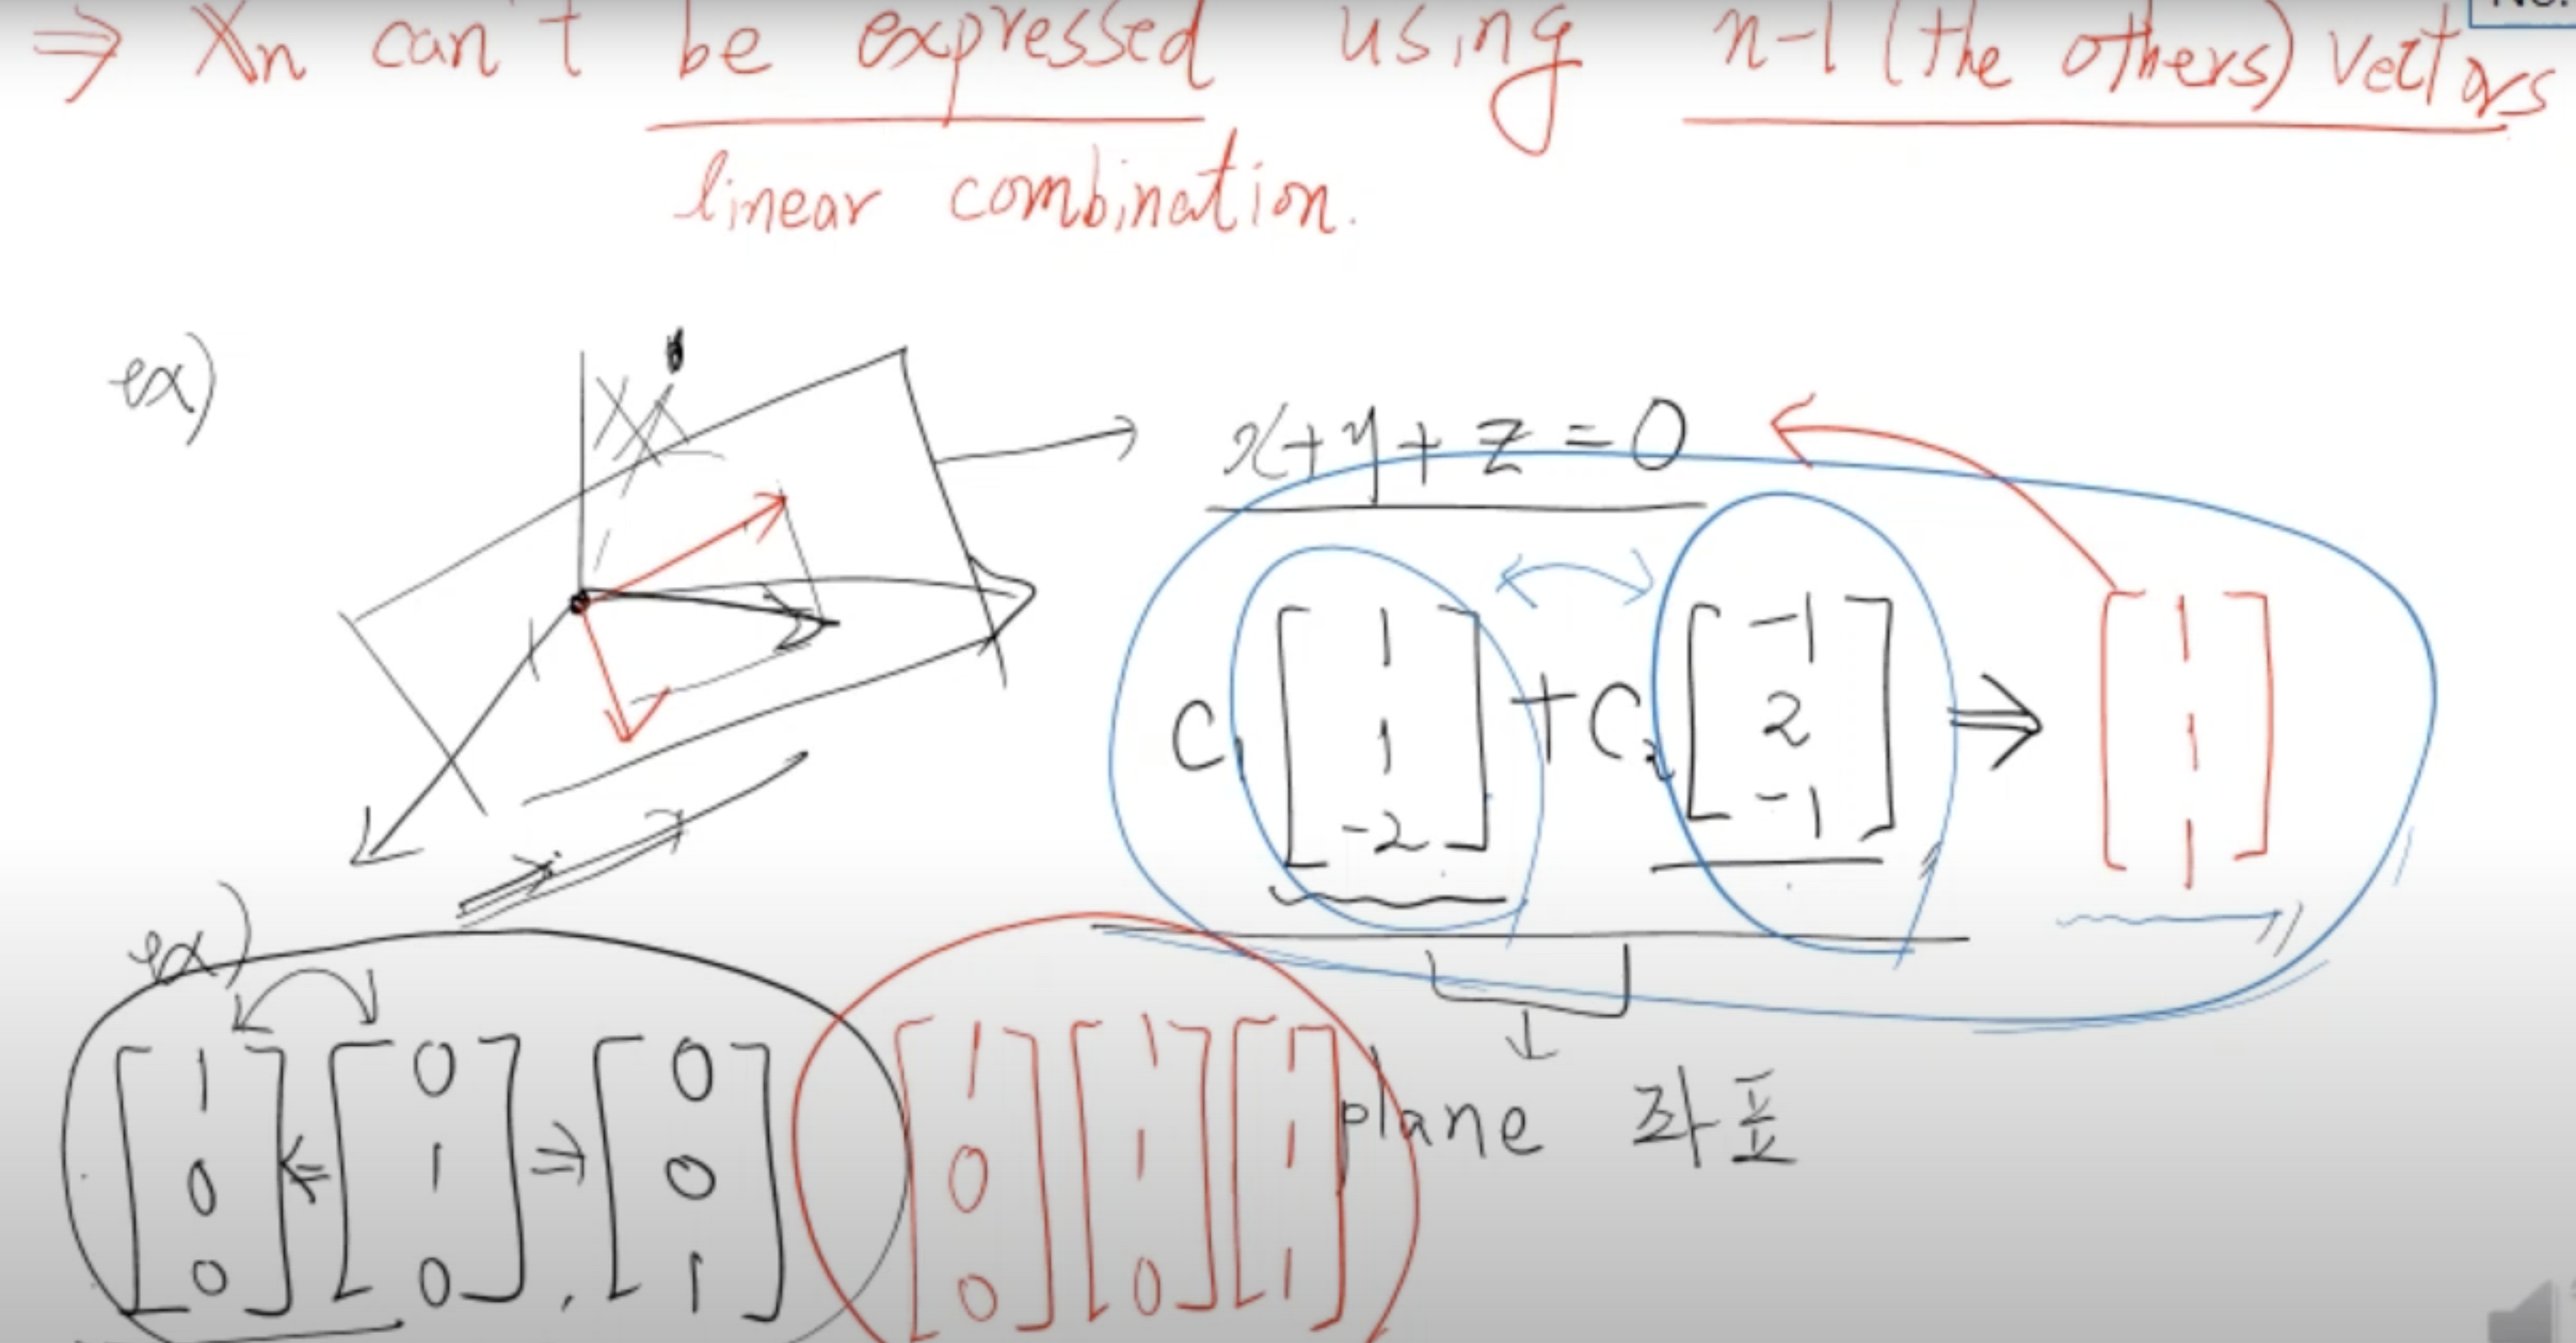 ⇒ Xn can't be expressed using n-1 (the others) vectors
linear combination.
ex)
x+y+z=0
C₁ [1 1 -2] + C₂ [-1 2 -1] ⇒ [1 1 1]
plane 좌표
ex)
[1 0 0] ⇐ [0 1 0] ⇒ , [0 0 1] [1 0 0] [1 1 0] [1 1 1]